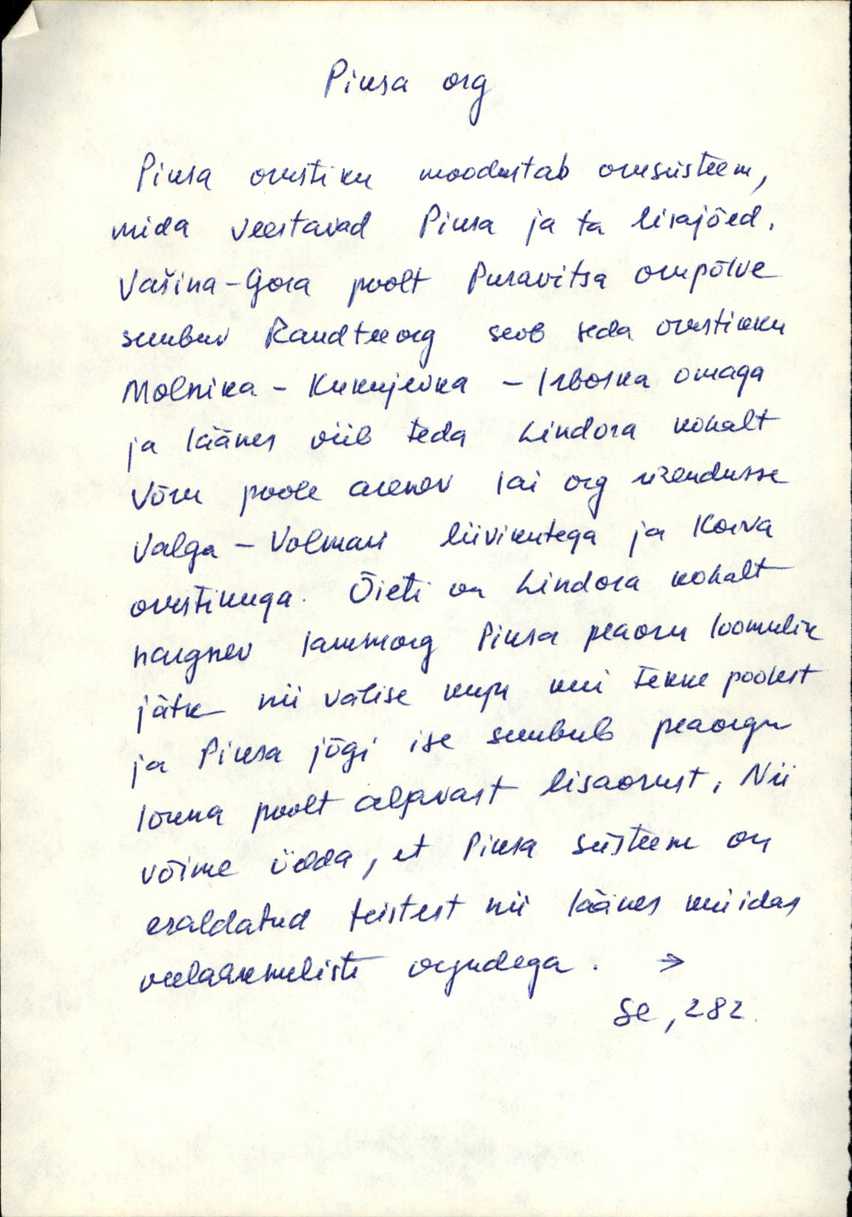 Piusa org
Piusa orustiku moodustab orusüsteem,
mida veestavad Piusa ja ta lisajõed.
Vašina-Gora poolt Puravitsa orupõlve
suubuv Raudteeorg seob seda orustikku
Molnika - Kukujevka - Irboska omaga
ja läänes viib teda Lindora kohalt
Võru poole arenev lai org ühendusse
Valga - Volmari liivikutega ja Koiva
orustikuga. Õieti on Lindora kohalt
hargnev lammorg Piusa peaoru loomulik
jätk nii välise kuju kui tekke poolest
ja Piusa jõgi ise suubub peaorgu
lõuna poolt algavast lisaorust. Nii
võime öelda, et Piusa süsteem on
eraldatud teistest nii läänes kui idas
veelahkmeliste orgudega. →
Se, 282.